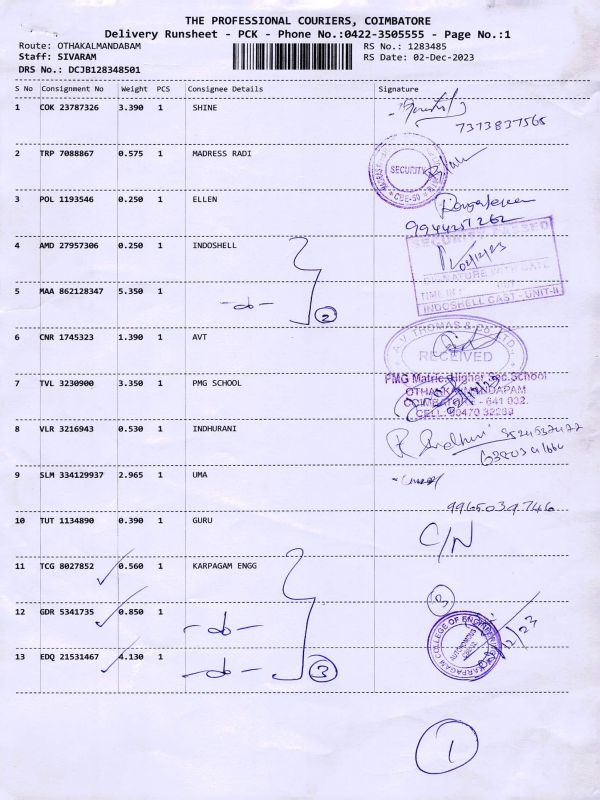 THE PROFESSIONAL COURIERS, COIMBATORE
Delivery Runsheet - PCK - Phone No.:0422-3505555 - Page No.:1
Route: OTHAKALMANDABAM RS No.: 1283485
Staff: SIVARAM RS Date: 02-Dec-2023
DRS No.: DCJB128348501
S No Consignment No Weight PCS Consignee Details Signature
1 COK 23787326 3.390 1 SHINE
7373837565
2 TRP 7088867 0.575 1 MADRESS RADI
SECURITY
CBE-50
3 POL 1193546 0.250 1 ELLEN
9944251262
4 AMD 27957306 0.250 1 INDOSHELL
SIGNATURE WITH DATE
TIME IN :
INDOSHELL CAST - UNIT-II
5 MAA 862128347 5.350 1 -do- 2
6 CNR 1745323 1.390 1 AVT
A.V. THOMAS & CO LTD.
RECEIVED
7 TVL 3230900 3.350 1 PMG SCHOOL
PMG Matric.Higher Sec.School
OTHAKKALMANDAPAM
COIMBATORE - 641 032.
CELL: 90470 32283
8 VLR 3216943 0.530 1 INDHURANI
R Indhu
9 SLM 334129937 2.965 1 UMA
9965039746
10 TUT 1134890 0.390 1 GURU
C/N
11 TCG 8027852 0.560 1 KARPAGAM ENGG
3
12 GDR 5341735 0.850 1 -do-
KARPAGAM COLLEGE OF ENGINEERING
AUTONOMOUS
13 EDQ 21531467 4.130 1 -do- 3
1